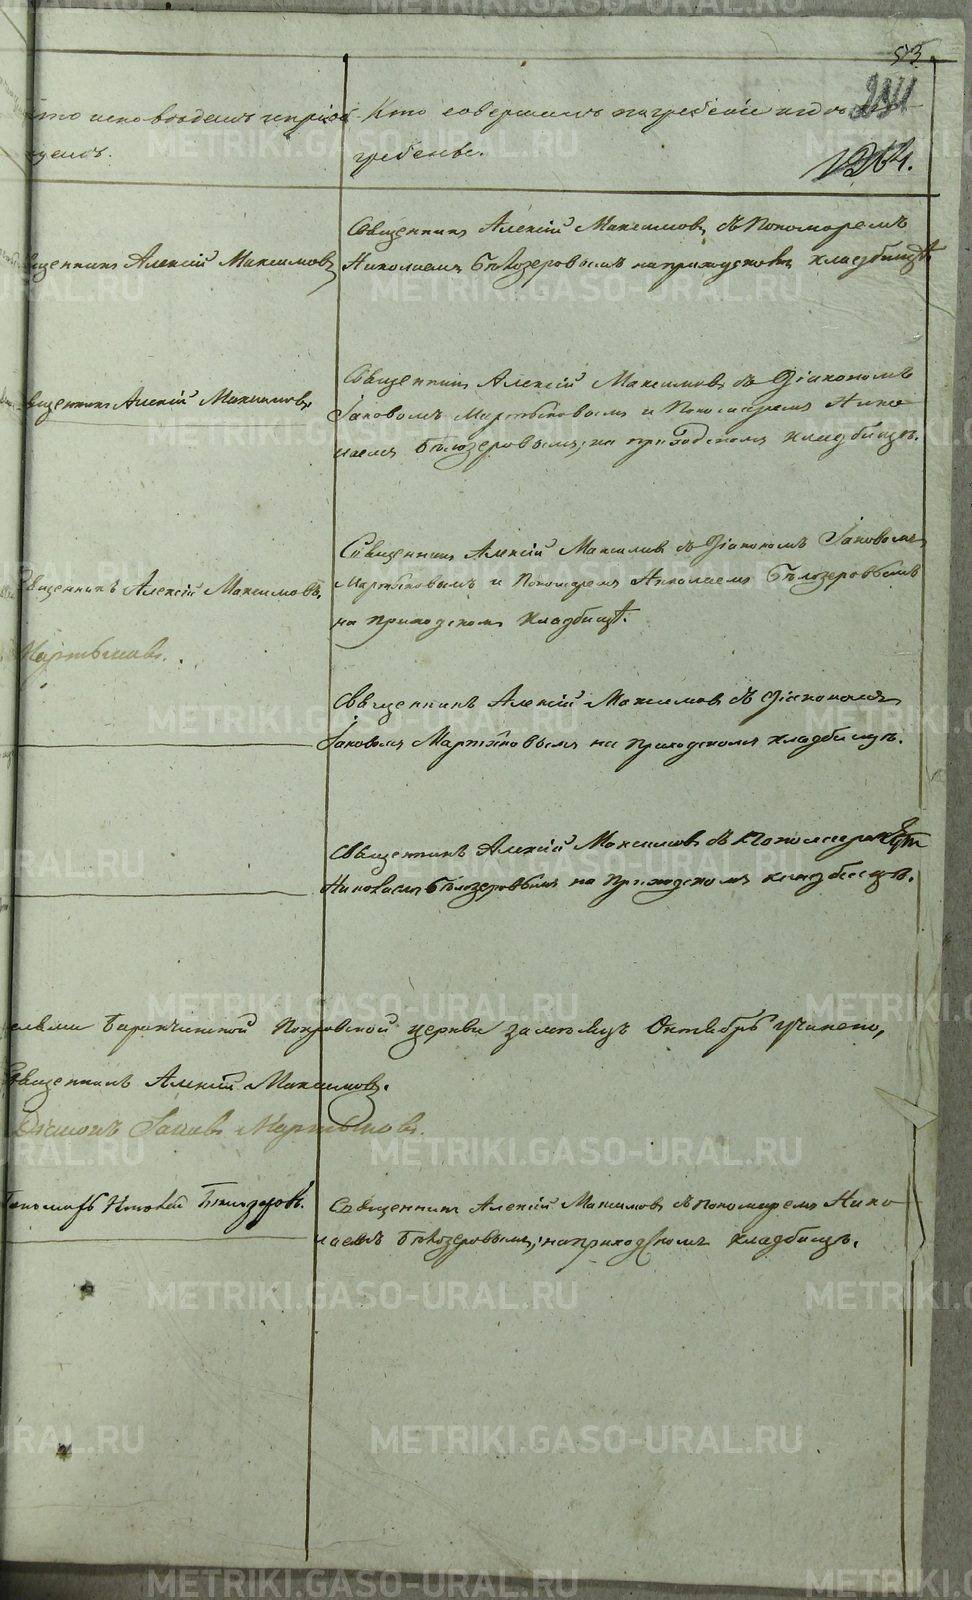 53.
231
1264.
Кто исповѣдалъ и пріоб-
щалъ.
Кто совершалъ погребеніе и гдѣ по-
гребены.
Священникъ Алексій Максимовъ
Священникъ Алексій Максимовъ съ Пономаремъ
Николаемъ Бѣлозеровымъ на приходскомъ кладбищѣ
Священникъ Алексій Максимовъ
Священникъ Алексій Максимовъ съ Діакономъ
Іаковомъ Мартыновымъ и Пономаремъ Нико-
лаемъ Бѣлозеровымъ, на приходскомъ кладбищѣ.
Священникъ Алексій Максимовъ.
Мартыновъ.
Священникъ Алексій Максимовъ съ Діакономъ Іаковомъ
Мартыновымъ и Пономаремъ Николаемъ Бѣлозеровымъ
на приходскомъ кладбищѣ.
Священникъ Алексій Максимовъ съ Діакономъ
Іаковомъ Мартыновымъ на приходскомъ кладбищѣ.
Священникъ Алексій Максимовъ съ Пономаремъ
Николаемъ Бѣлозеровымъ на приходскомъ кладбищѣ.
Баранчинской Покровской церкви за мѣсяцъ Октябрь учинено,
Священникъ Алексій Максимовъ.
Діаконъ Іаковъ Мартыновъ.
Пономарь Николай Бѣлозеровъ.
Священникъ Алексій Максимовъ съ Пономаремъ Нико-
лаемъ Бѣлозеровымъ, на приходскомъ кладбищѣ.
METRIKI.GASO-URAL.RU